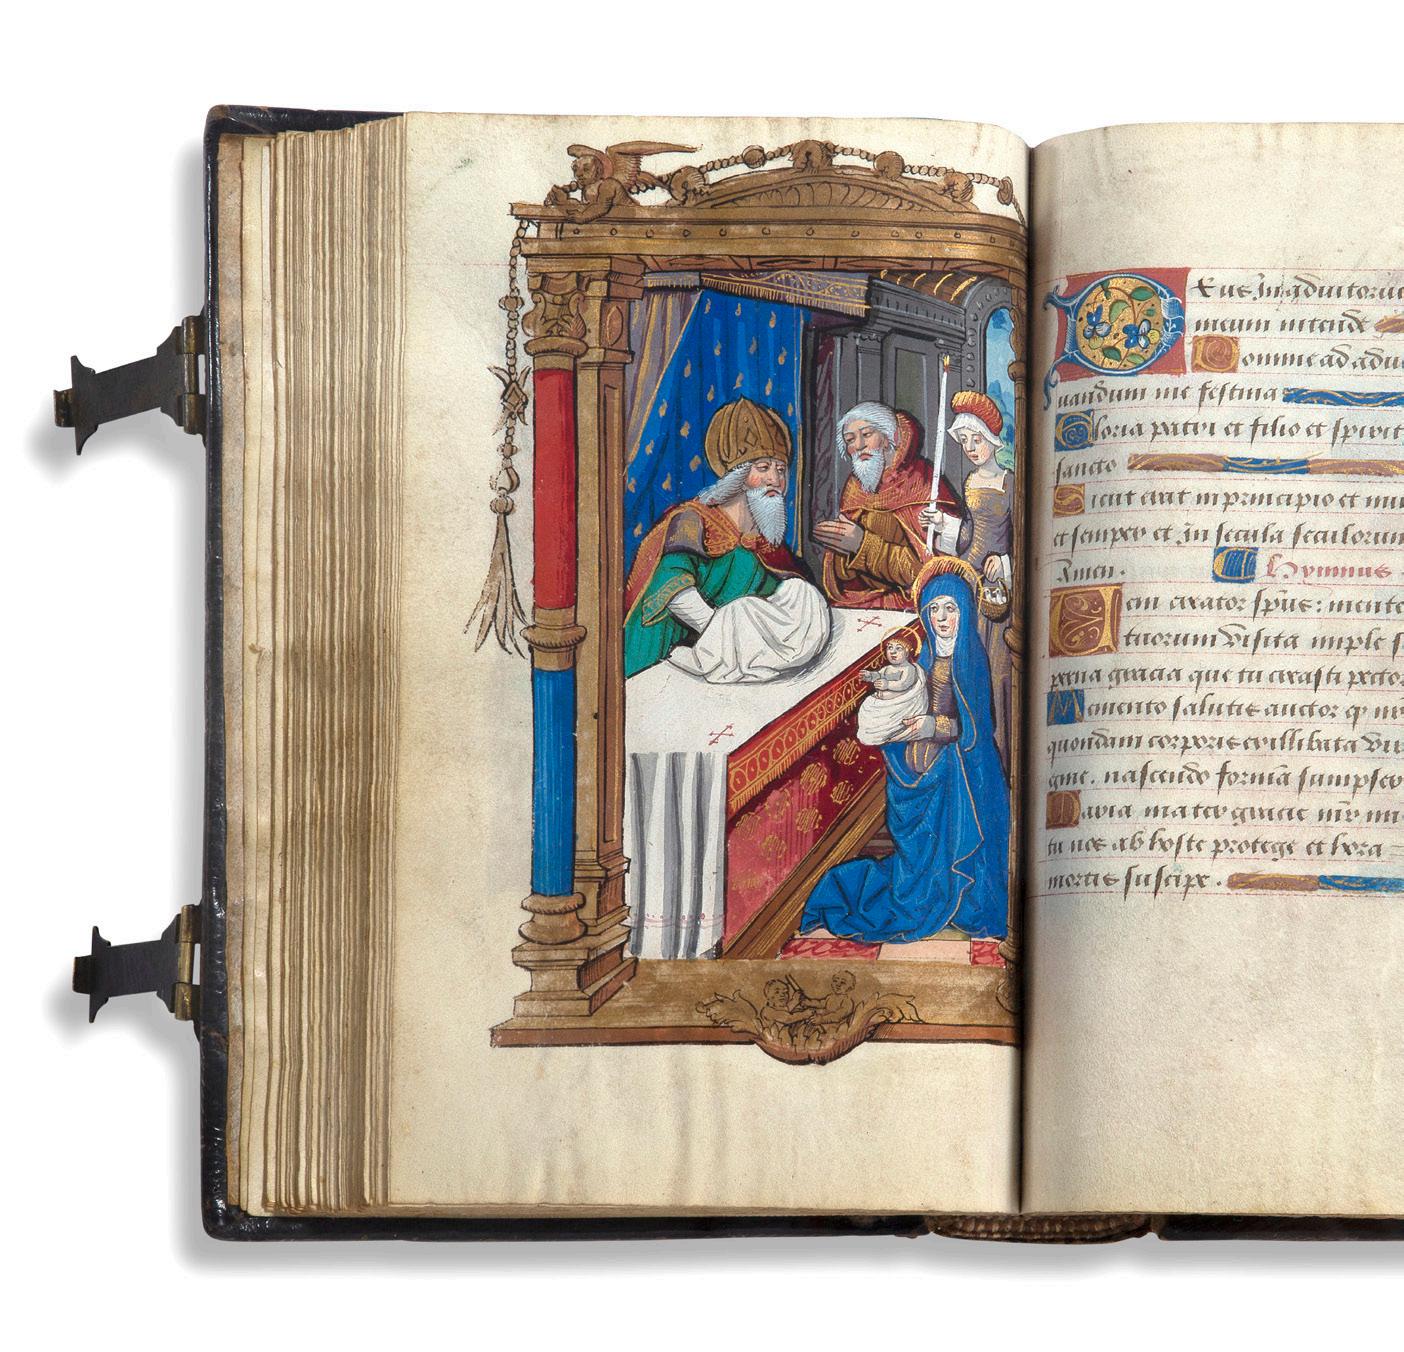 Deus In adiutoriu
meum intende
Domine ad adiu
uandum me festina
Gloria patri et filio et spirit
sancto
Sicut erat in principio et nu
et semper et In secula seculorum
Amen. Hymnus
Veni creator sp̄us: mente
tuorum visita imple s
perna gracia que tu creasti pector
Memento salutis auctor q̄
quondam corporis exillibata vir
gine. nascendo formā sumpser
Maria mater gracie m̄r mi
tu nos ab hoste protege et hora
mortis suscipe.